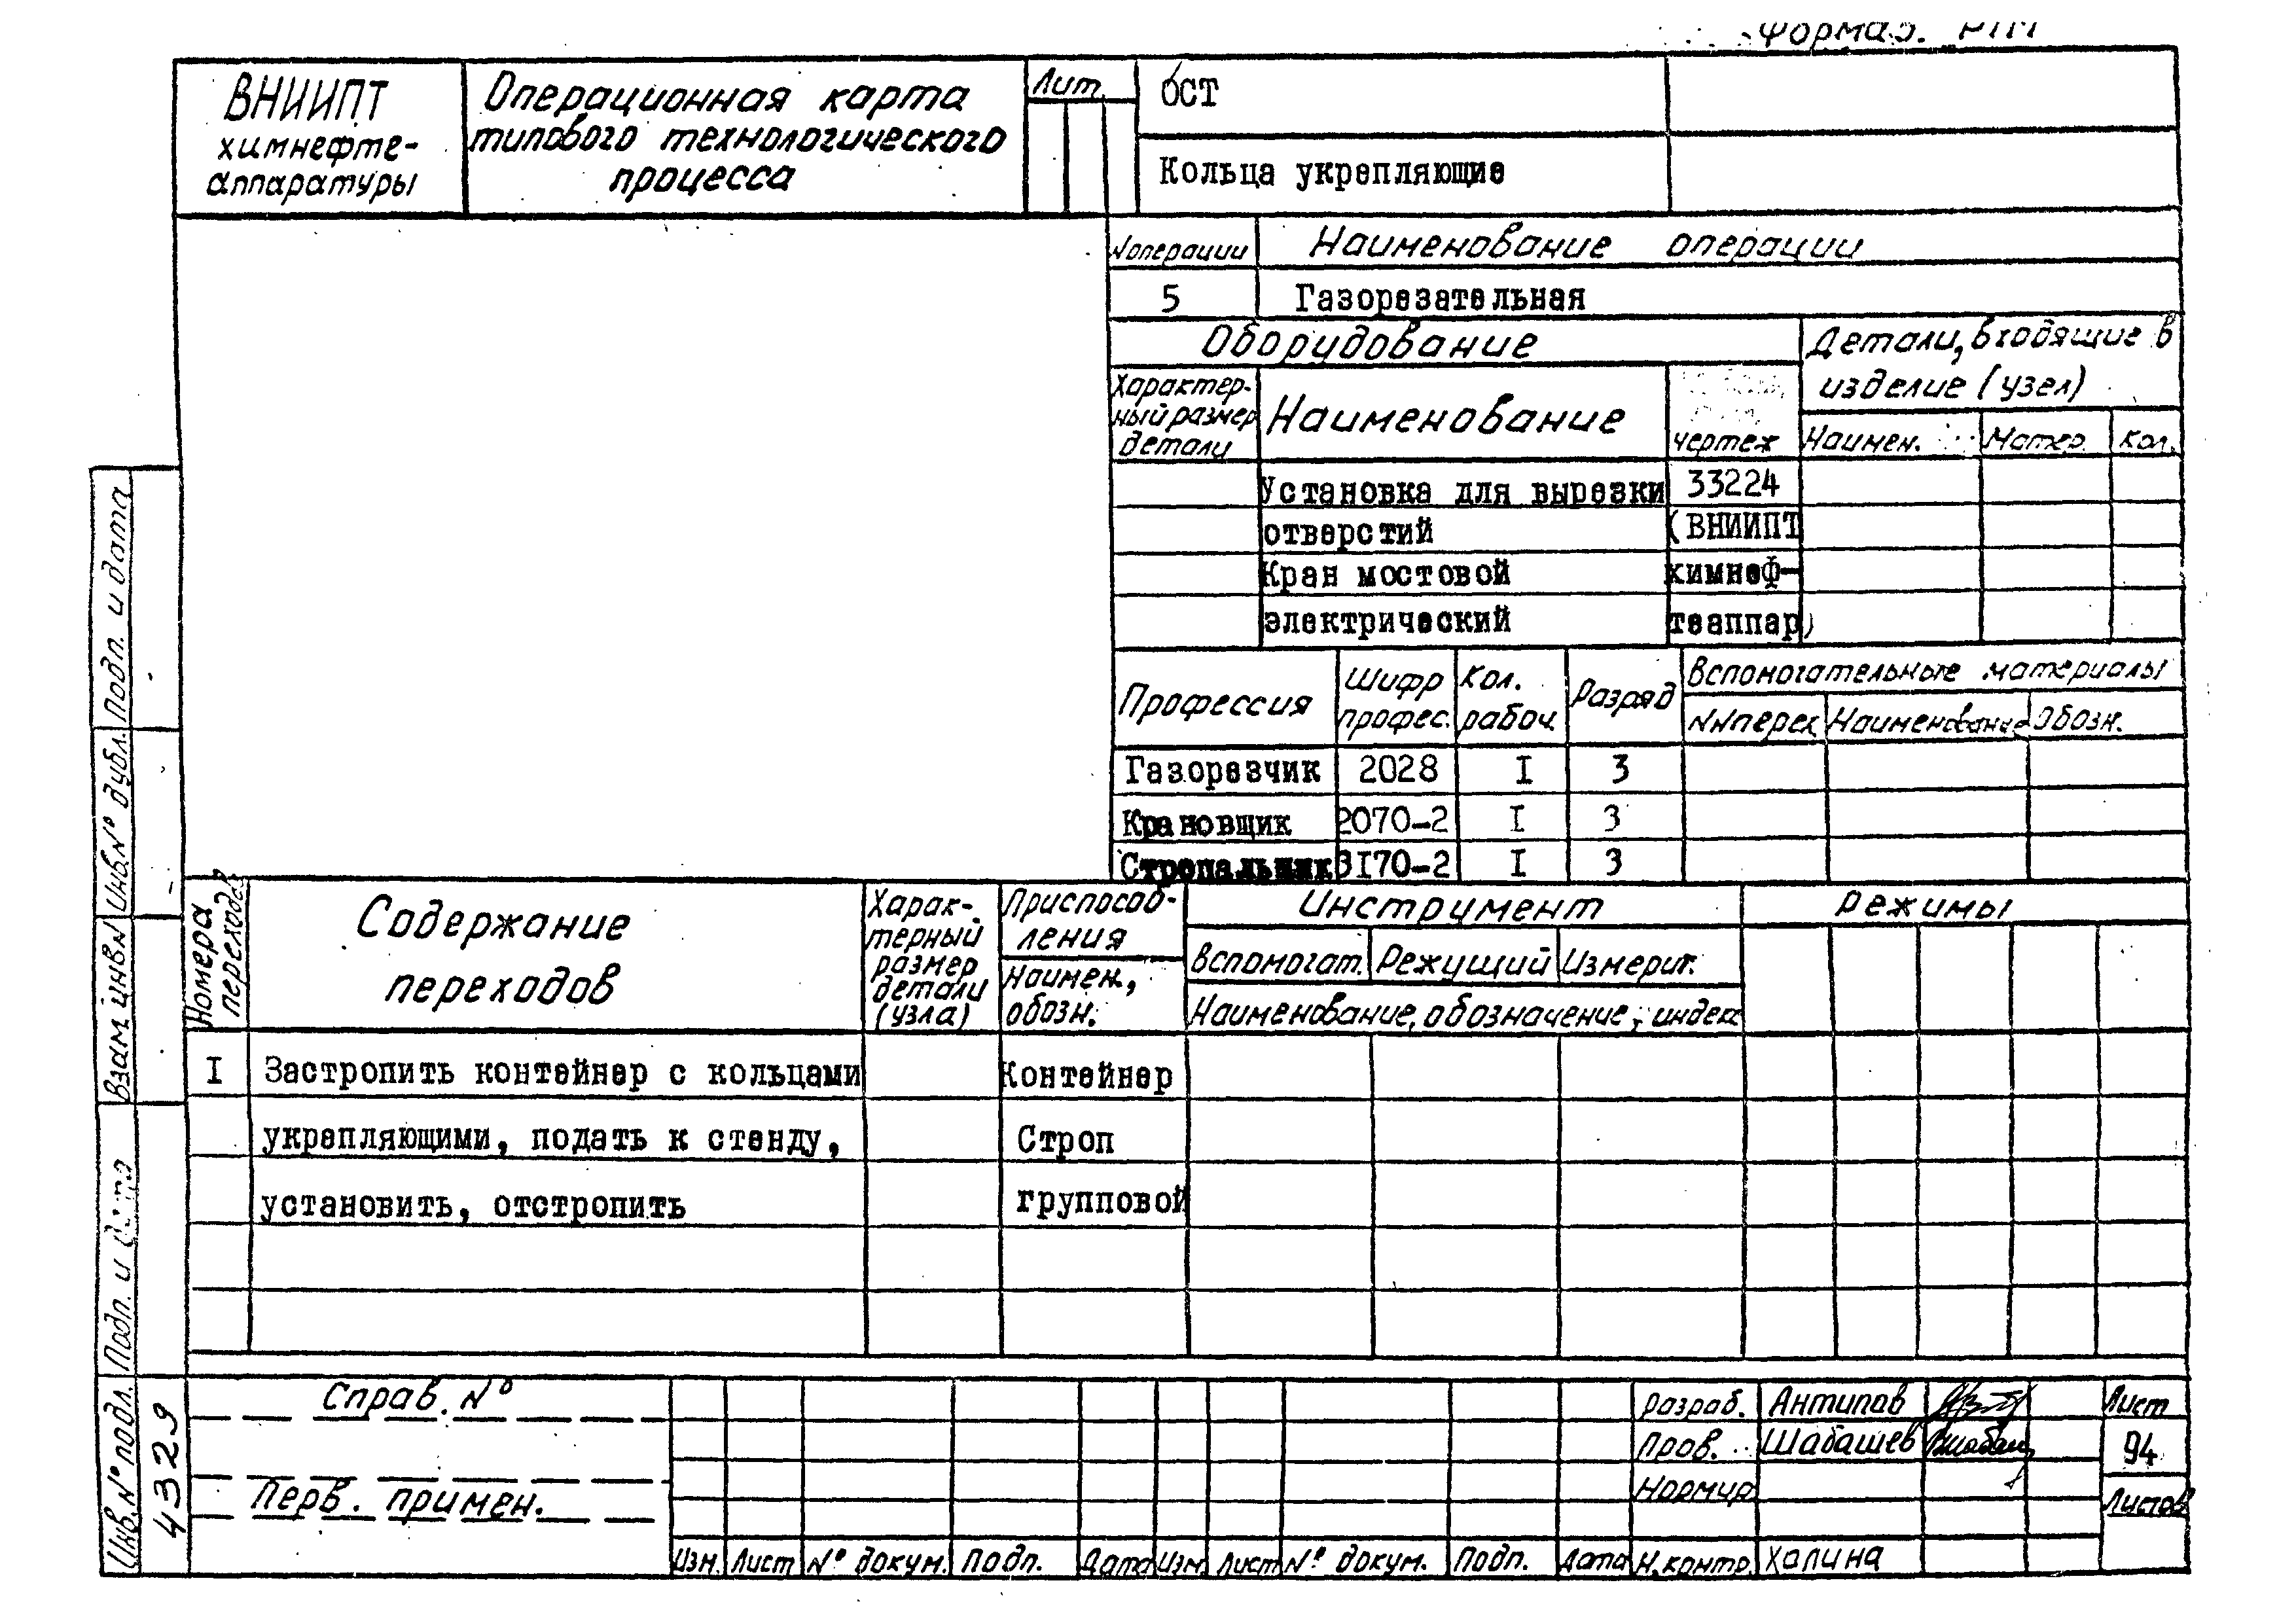 ВНИИПТ
химнефте-
аппаратуры
Операционная карта
типового технологического
процесса
Лит.
ОСТ
Кольца укрепляющие
№ операции Наименование операции
5 Газорезательная
Оборудование
Детали, входящие в
изделие (узел)
Характер-
ный размер
детали
Наименование
чертеж
Наимен. Матер. Кол.
Установка для вырезки 33224
отверстий (ВНИИПТ
Кран мостовой химнеф-
электрический теаппар)
Профессия
Шифр
профес.
Кол.
рабоч.
Разряд
Вспомогательные материалы
№№ перех. Наименование Обозн.
Газорезчик 2028 I 3
Крановщик 2070-2 I 3
Стропальщик 3I70-2 I 3
Номера
переходов
Содержание
переходов
Харак-
терный
размер
детали
(узла)
Приспособ-
ления
Наимен.,
обозн.
Инструмент
Вспомогат. Режущий Измерит.
Наименование, обозначение, индекс
Режимы
I Застропить контейнер с кольцами Контейнер
укрепляющими, подать к стенду, Строп
установить, отстропить групповой
Подп. и дата
Инв. № дубл.
Взам инв №
Подп. и дата
Инв. № подл.
4329
Справ. №
Перв. примен.
Изм. Лист № докум. Подп. Дата Изм. Лист № докум. Подп. Дата
Разраб. Антипов
Пров. Шабашев
Нормир.
Н.контр. Халина
Лист
94
Листов